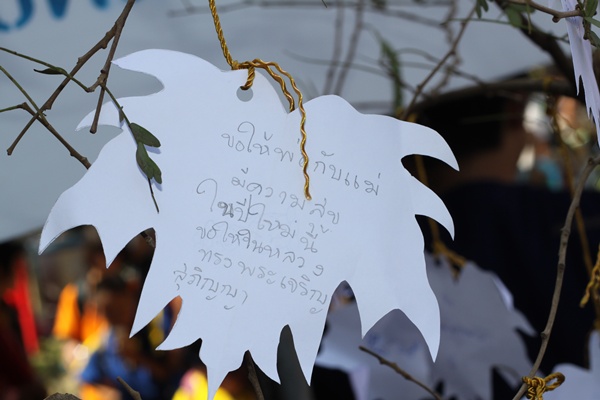 ขอให้พ่อกับแม่
มีความสุข
ในปีใหม่นี้
ขอให้ในหลวง
ทรงพระเจริญ
สุภิญญา